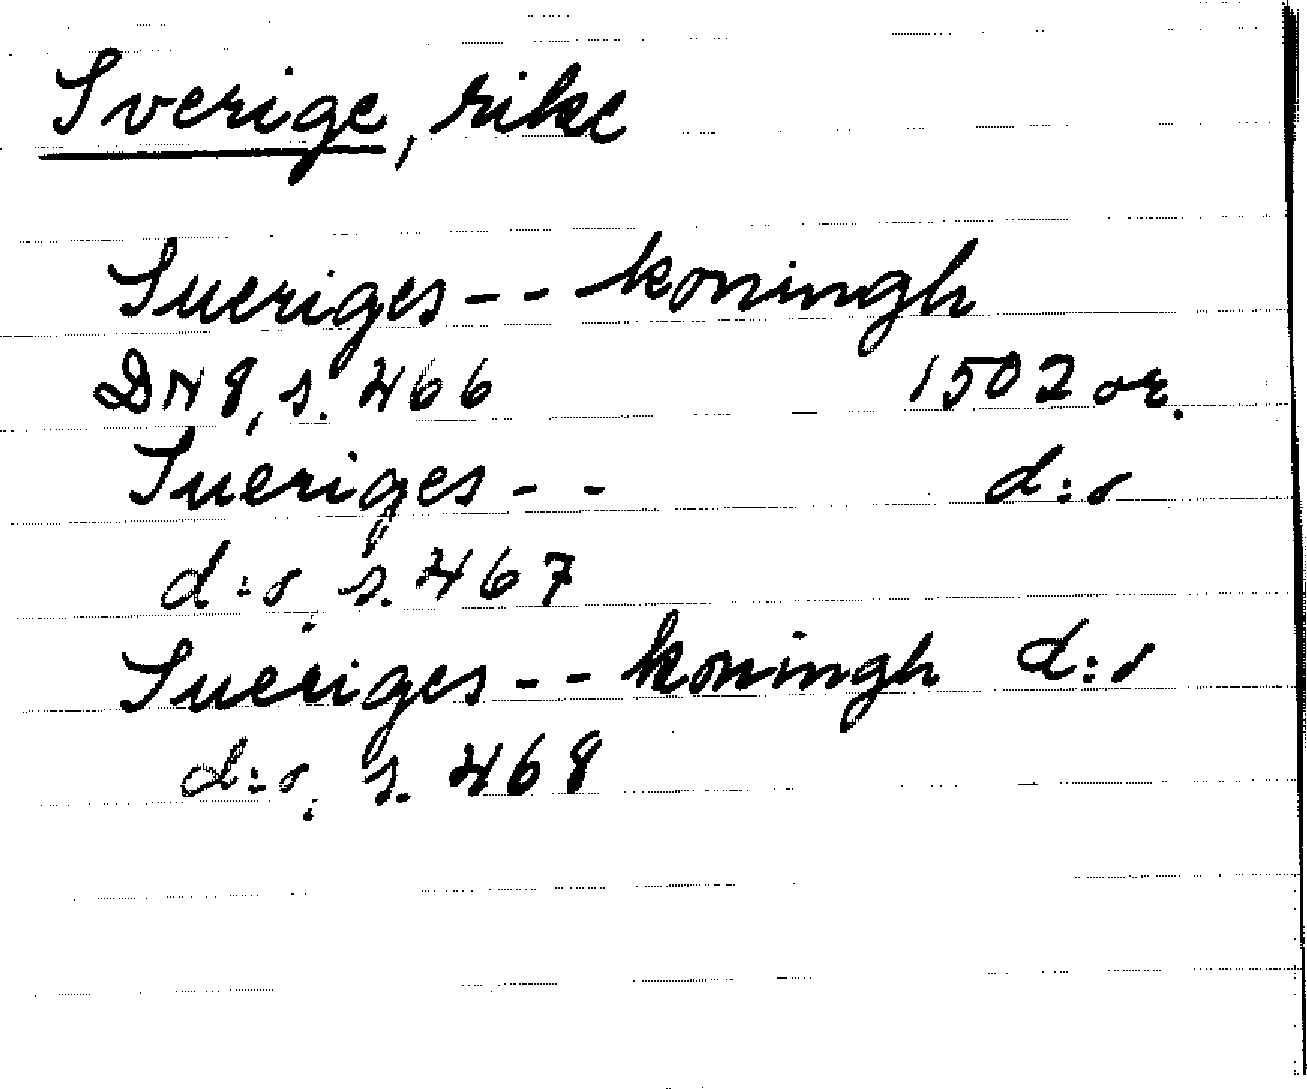 Sverige, rike
Sueriges - - - koningh
DN 8, s. 466 1502 or.
Sueriges - - d:o
d:o, s. 467
Sueriges - - koningh d:o
d:o, s. 468